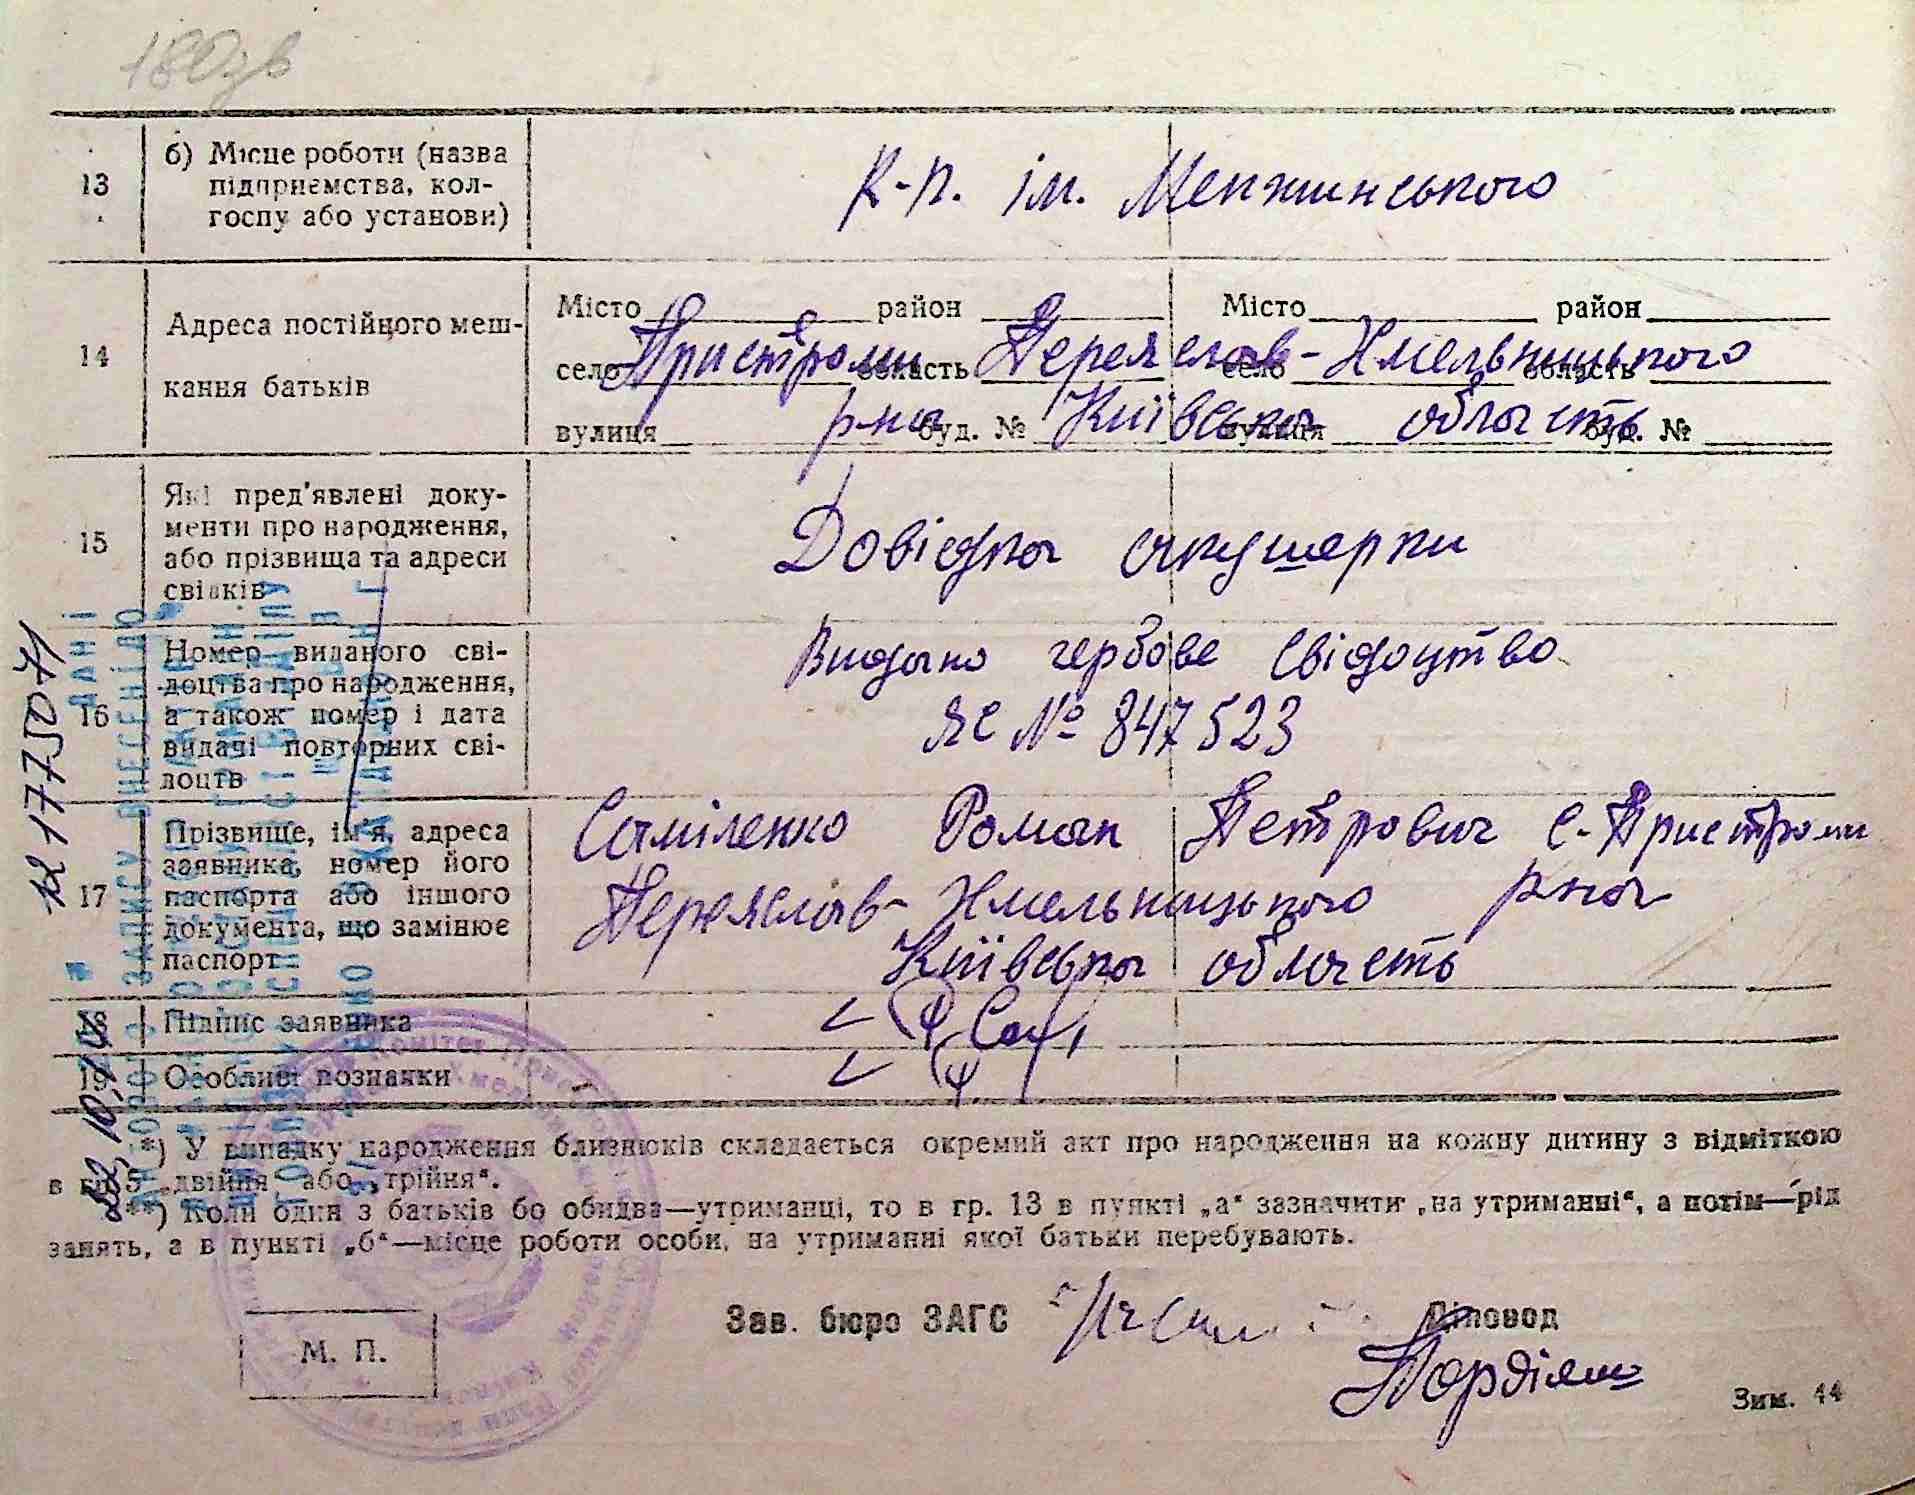 180зв
13
б) Місце роботи (назва
підприємства, кол-
госпу або установи)
К-п. ім. Менжинського
14
Адреса постійного меш-
кання батьків
Місто район Місто район
село Пристроми область Переяслав-Хмельницького село область
вулиця р-на буд. № Київська область вулиця буд. №
15
Які пред'явлені доку-
менти про народження,
або прізвища та адреси
свідків
Довідка акушерки
16
Номер виданого сві-
доцтва про народження,
а також номер і дата
видачі повторних сві-
доцтв
Видано гербове свідоцтво
ЯЄ № 847523
17
Прізвище, ім'я, адреса
заявника, номер його
паспорта або іншого
документа, що замінює
паспорт
Саміленко Роман Петрович с. Пристроми
Переяслав-Хмельницького р-на
Київська область
18
Підпис заявника
19
Особливі познаки
*) У випадку народження близнюків складається окремий акт про народження на кожну дитину з відміткою
в гр. 5 „двійня“ або „трійня“.
**) Коли один з батьків бо обидва—утриманці, то в гр. 13 в пункті „а“ зазначити „на утриманні“, а потім—рід
занять, а в пункті „б“—місце роботи особи, на утриманні якої батьки перебувають.
Зав. бюро ЗАГС
Діловод
М. П.
Зим. 44
12177 5071
ДАНІ
ЗАПИСУ ВНЕСЕНІ ДО